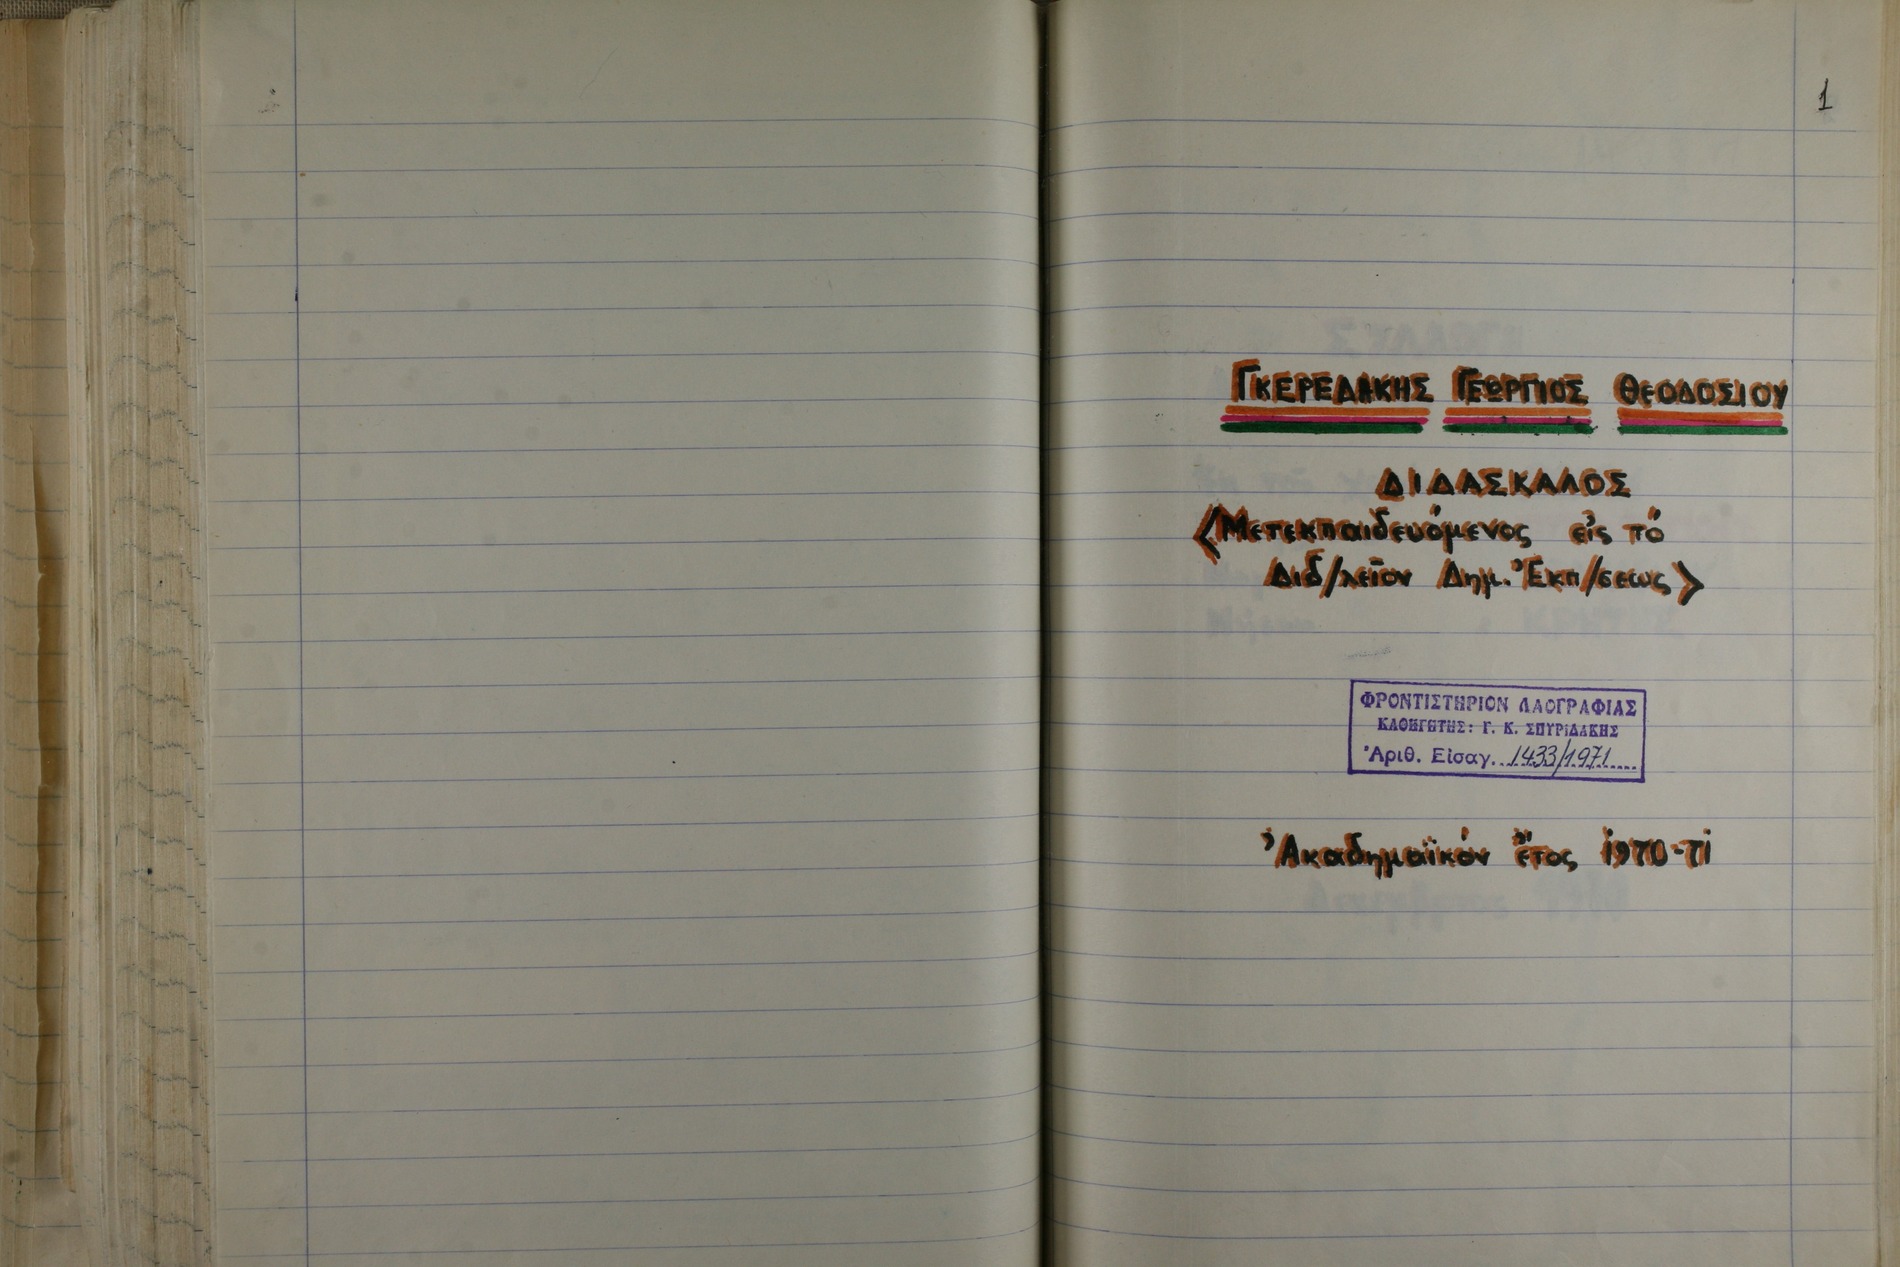 1
ΓΚΕΡΕΔΑΚΗΣ ΓΕΩΡΓΙΟΣ ΘΕΟΔΟΣΙΟΥ
ΔΙΔΑΣΚΑΛΟΣ
<Μετεκπαιδευόμενος εἰς τό
Διδ/λεῖον Δημ. Ἐκπ/σεως>
ΦΡΟΝΤΙΣΤΗΡΙΟΝ ΛΑΟΓΡΑΦΙΑΣ
ΚΑΘΗΓΗΤΗΣ: Γ. Κ. ΣΠΥΡΙΔΑΚΗΣ
Ἀριθ. Εἰσαγ. 1433/1971
Ἀκαδημαϊκόν ἔτος 1970-71